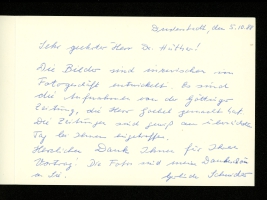 Duderstadt, den 5.10.88
Sehr geehrter Herr Dr. Hüther!
Die Bilder sind inzwischen im
Fotogeschäft entwickelt. Es sind
die Aufnahmen von der Göttinger
Zeitung, die Herr Goebel gemacht hat.
Die Zeitungen sind gewiß am
Tag bei Ihnen eingetroffen.
Herzlichen Dank Ihnen für Ihren
Vortrag! Die Fotos sind mein Dankeschön
an Sie! Schneider